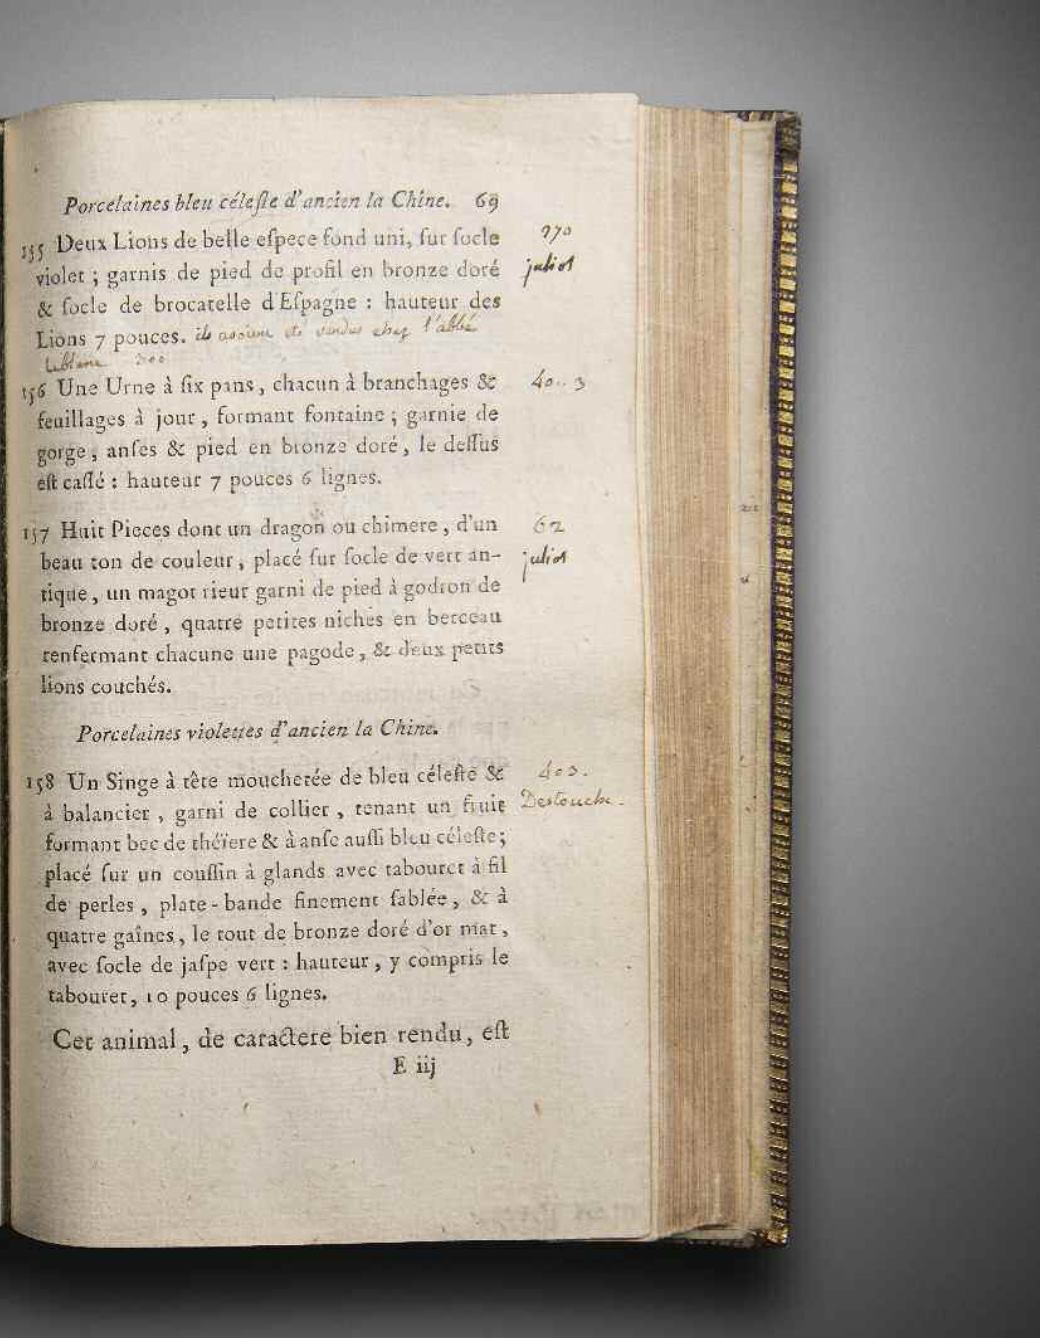 Porcelaines bleu céleſte d'ancien la Chine. 69
155 Deux Lions de belle eſpece fond uni, ſur ſocle
violet ; garnis de pied de profil en bronze doré
& ſocle de brocatelle d'Eſpagne : hauteur des
Lions 7 pouces. ils avoient été vendus chez l'abbé
leblanc 300
970
juliot
156 Une Urne à ſix pans, chacun à branchages &
feuillages à jour, formant fontaine ; garnie de
gorge, anſes & pied en bronze doré, le deſſus
eſt caſſé : hauteur 7 pouces 6 lignes.
40.. 3
157 Huit Pieces dont un dragon ou chimere, d'un
beau ton de couleur, placé ſur ſocle de vert an-
tique, un magot rieur garni de pied à godron de
bronze doré, quatre petites niches en berceau
renfermant chacune une pagode, & deux petits
lions couchés.
62
juliot
Porcelaines violettes d'ancien la Chine.
158 Un Singe à tête mouchetée de bleu céleſte &
à balancier, garni de collier, tenant un fruit
formant bec de théïere & à anſe auſſi bleu céleſte;
placé ſur un couſſin à glands avec tabouret à fil
de perles, plate-bande finement ſablée, & à
quatre gaînes, le tout de bronze doré d'or mat,
avec ſocle de jaſpe vert : hauteur, y compris le
tabouret, 10 pouces 6 lignes.
403.
Destouche.
Cet animal, de caractere bien rendu, eſt
E iij